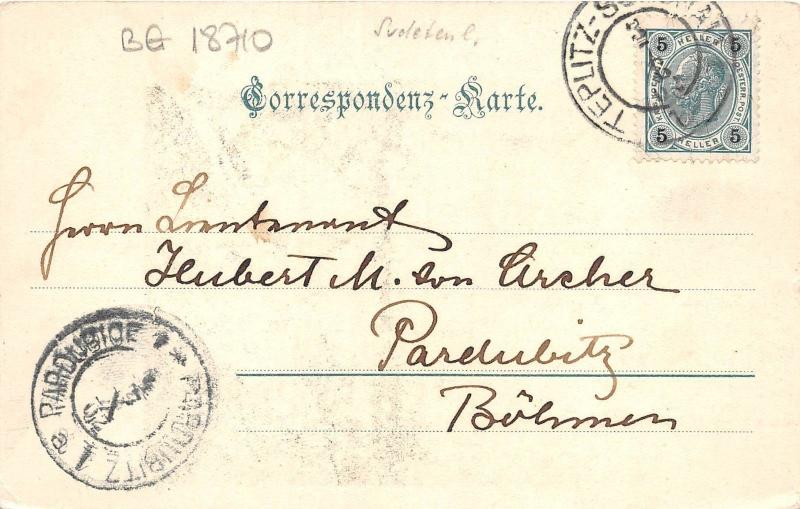 BG 18710
Sudetenl.
TEPLITZ-SCHÖNAU
5 HELLER 5
5 HELLER 5
Correspondenz-Karte.
Herrn Lieutenant
Hubert M. von Archer
Pardubitz
Böhmen
PARDUBICE 1 * PARDUBITZ 1